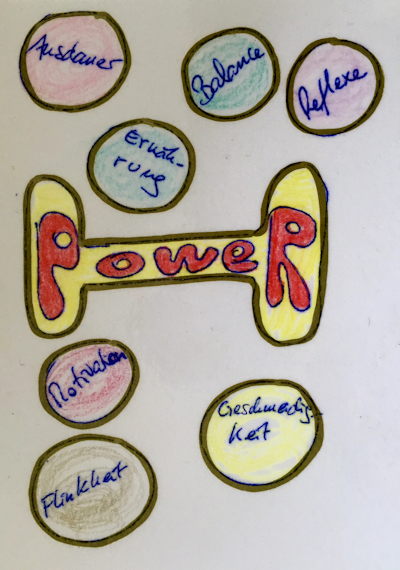 Ausdauer
Balance
Reflexe
Ernäh-
rung
POWER
Motivation
Geschmeidig-
keit
Flinkheit